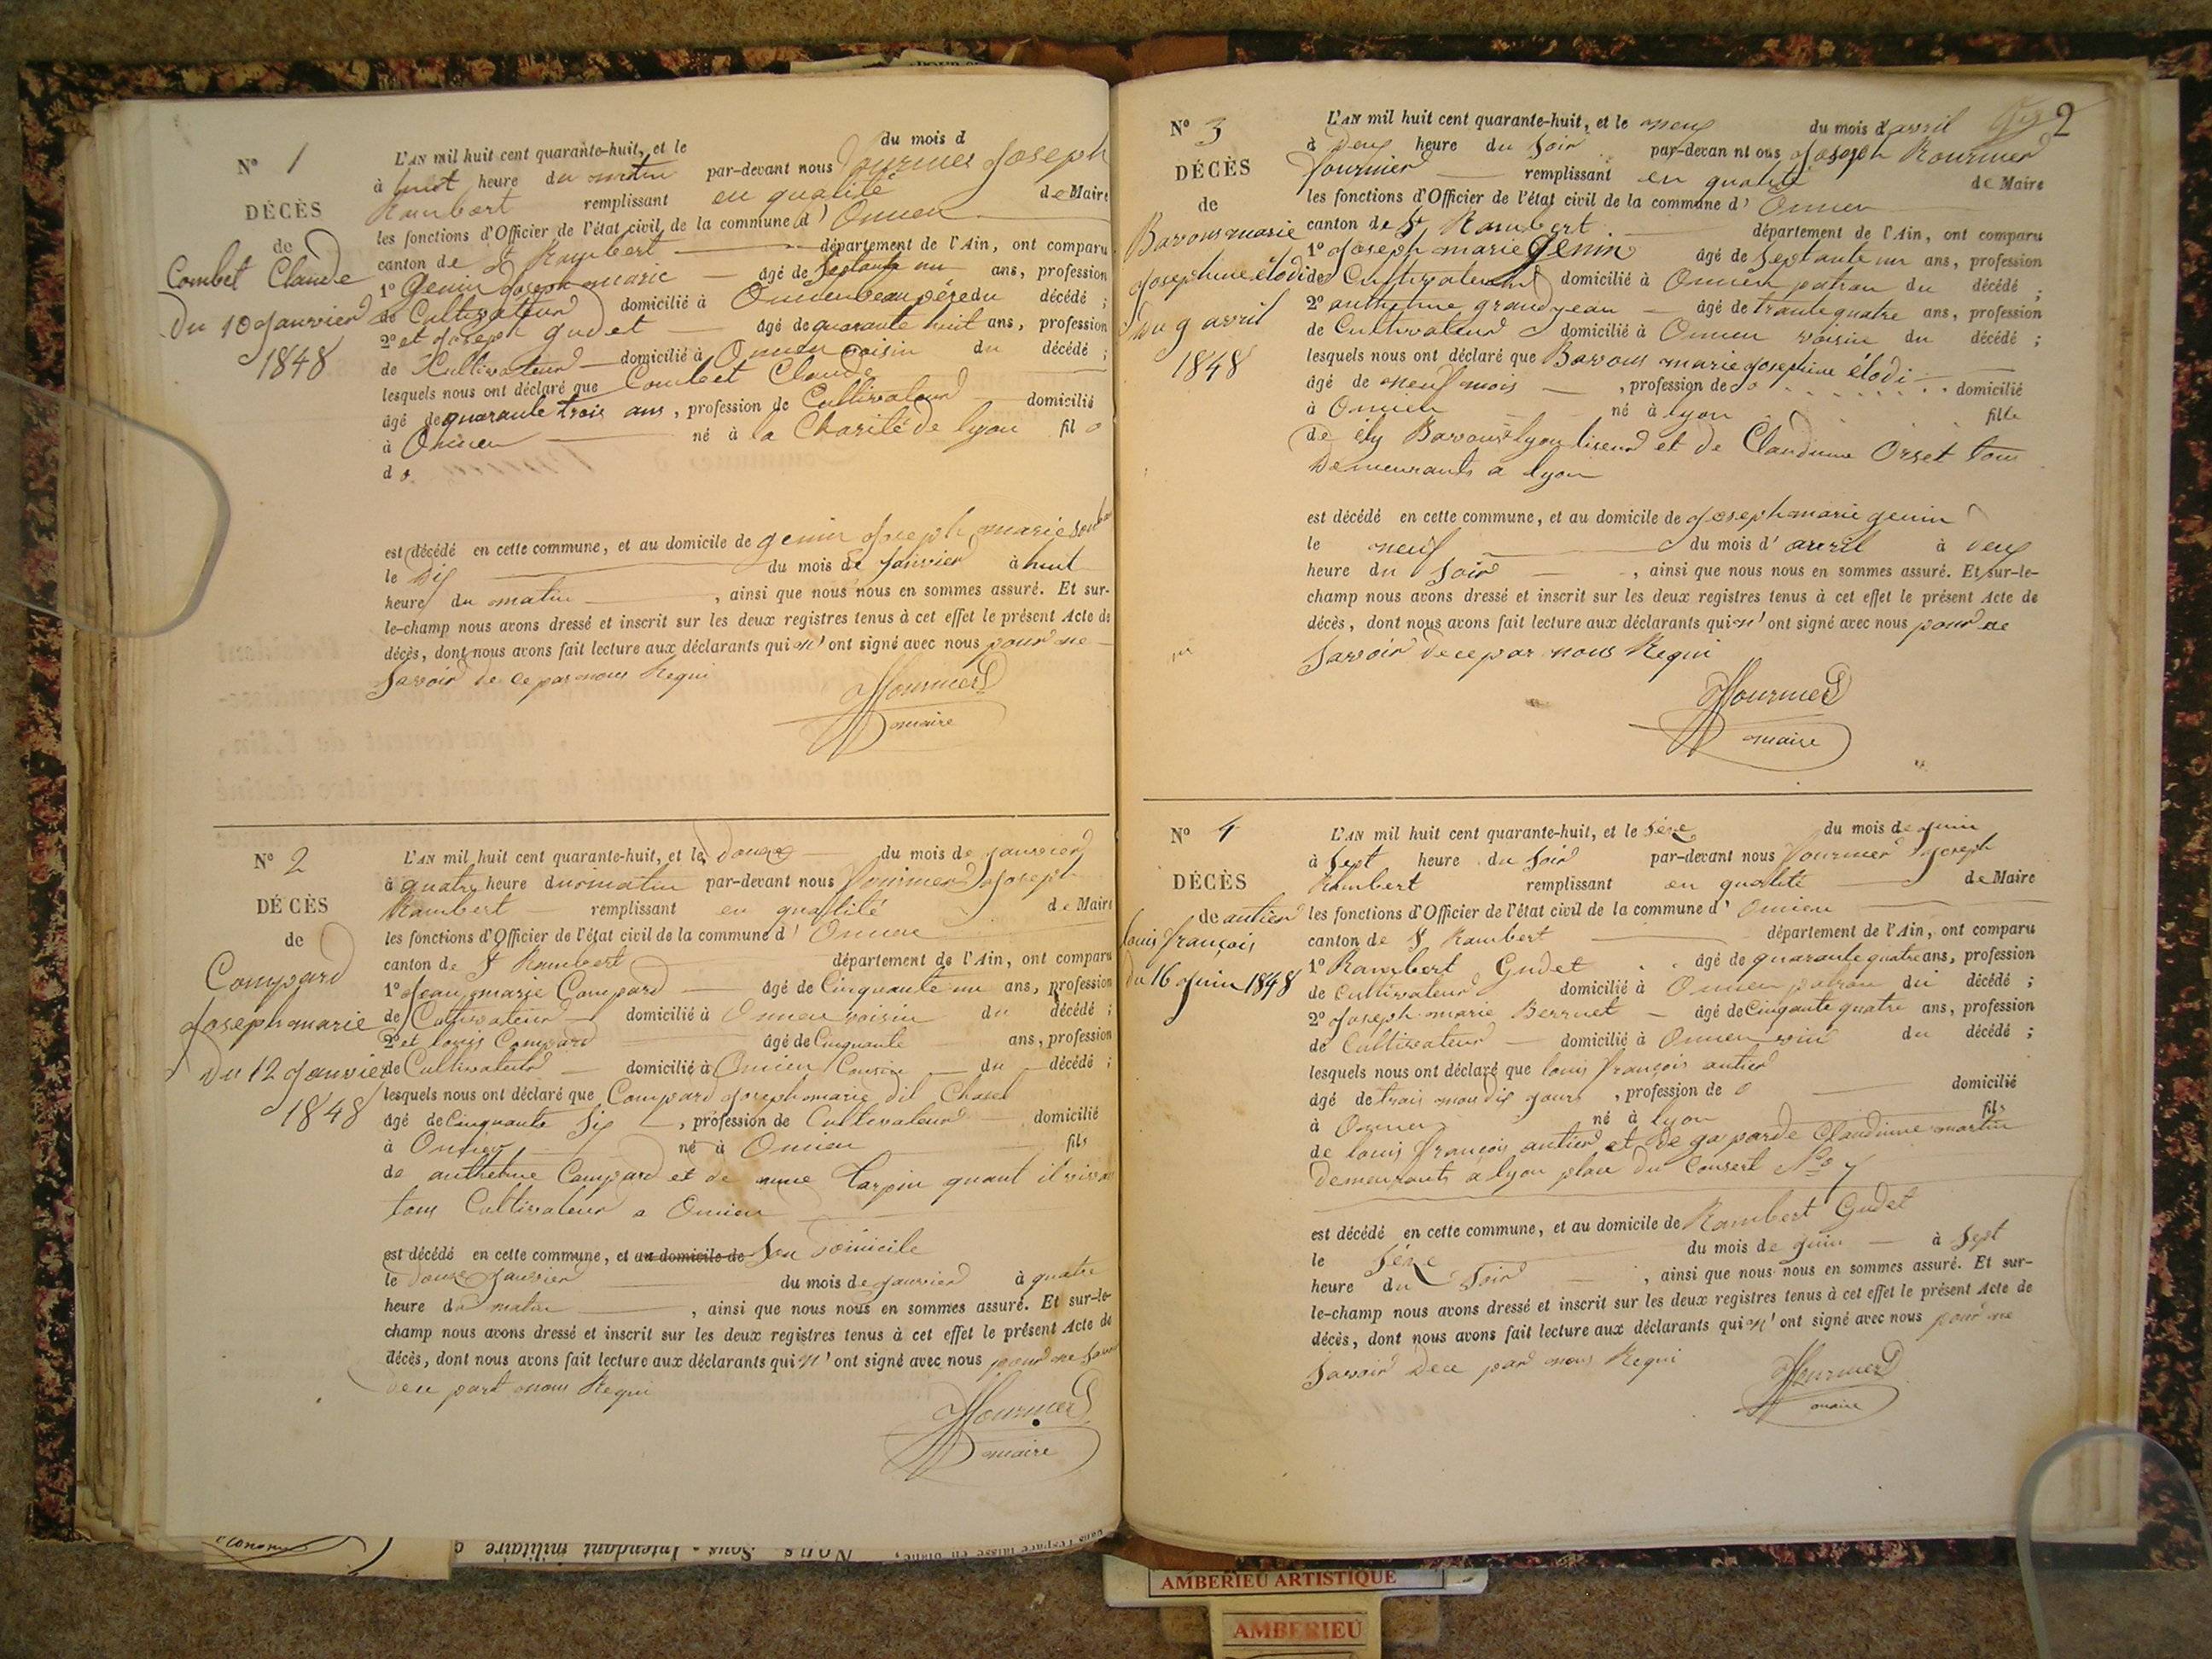 N° 1
DÉCÈS
de
Combet Claude
Du 10 Janvier
1848
L'AN mil huit cent quarante-huit, et le du mois d
à huit heure du matin par-devant nous fournier Joseph
Rambert remplissant en qualité de Maire
les fonctions d'Officier de l'état civil de la commune d' Oncieu
canton de St Rambert département de l'Ain, ont comparu
1° Genin Joseph marie âgé de Septante un ans, profession
de Cultivateur domicilié à Oncieu beau pére du décédé ;
2° et Joseph gudet âgé de quarante huit ans, profession
de Cultivateur domicilié à Oncieu voisin du décédé ;
lesquels nous ont déclaré que Combet Claude
âgé de quarante trois ans, profession de Cultivateur domicilié
à Oncieu né à la Charité de lyon fil o
d o
est décédé en cette commune, et au domicile de genin Joseph marie
le Dix du mois de Janvier à huit
heure du matin , ainsi que nous nous en sommes assuré. Et sur-
le-champ nous avons dressé et inscrit sur les deux registres tenus à cet effet le présent Acte de
décès, dont nous avons fait lecture aux déclarants qui n' ont signé avec nous pour ne
Savoir de ce par nous Requi
fournier
maire
N° 2
DÉCÈS
de
Compard
Joseph marie
Du 12 Janvier
1848
L'AN mil huit cent quarante-huit, et le douze du mois de Janvier
à quatre heure du matin par-devant nous fournier Joseph
Rambert remplissant en qualité de Maire
les fonctions d'Officier de l'état civil de la commune d' Oncieu
canton de St Rambert département de l'Ain, ont comparu
1° Jean marie Compard âgé de Cinquante un ans, profession
de Cultivateur domicilié à Oncieu voisin du décédé ;
2° et louis Compard âgé de Cinquante ans, profession
de Cultivateur domicilié à Oncieu Cousin du décédé ;
lesquels nous ont déclaré que Compard Joseph marie dit
âgé de Cinquante Six , profession de Cultivateur domicilié
à Oncieu né à Oncieu fils
de anthelme Compard et de anne Carpin quant
tous Cultivateur a Oncieu
est décédé en cette commune, et au domicile de Son Domicile
le douze Janvier du mois de Janvier à quatre
heure du matin , ainsi que nous nous en sommes assuré. Et sur-le-
champ nous avons dressé et inscrit sur les deux registres tenus à cet effet le présent Acte de
décès, dont nous avons fait lecture aux déclarants qui n' ont signé avec nous pour ne
part nous Requi
fournier
maire
2
N° 3
DÉCÈS
de
Barous marie
Josephine élodi
Du 9 avril
1848
L'AN mil huit cent quarante-huit, et le neuf du mois d'avril
à Deux heure du Soir par-devan nt ous Joseph Rambert
fournier remplissant en qualité de Maire
les fonctions d'Officier de l'état civil de la commune d' Oncieu
canton de St Rambert département de l'Ain, ont comparu
1° Joseph marie Genin âgé de Septante un ans, profession
de Cultivateur domicilié à Oncieu patron du décédé ;
2° anthelme grandjean âgé de trante quatre ans, profession
de Cultivateur domicilié à Oncieu voisin du décédé ;
lesquels nous ont déclaré que Barous marie Josephine élodi
âgé de neuf mois , profession de o domicilié
à Oncieu né à lyon fille
de ély Barous lyon liseur et de Claudine Orset tous
Demeurants a lyon
est décédé en cette commune, et au domicile de Joseph marie genin
le neuf du mois d'avril à Deux
heure du Soir , ainsi que nous nous en sommes assuré. Et sur-le-
champ nous avons dressé et inscrit sur les deux registres tenus à cet effet le présent Acte de
décès, dont nous avons fait lecture aux déclarants qui n' ont signé avec nous pour ne
Savoir de ce par nous Requi
fournier
maire
N° 4
DÉCÈS
de antier
louis françois
du 16 Juin 1848
L'AN mil huit cent quarante-huit, et le Séze du mois de Juin
à Sept heure du Soir par-devant nous fournier Joseph
Rambert remplissant en qualité de Maire
les fonctions d'Officier de l'état civil de la commune d' Oncieu
canton de St Rambert département de l'Ain, ont comparu
1° Rambert Gudet âgé de quarante quatre ans, profession
de Cultivateur domicilié à Oncieu patron du décédé ;
2° Joseph marie Berrnet âgé de Cinqante quatre ans, profession
de Cultivateur domicilié à Oncieu du décédé ;
lesquels nous ont déclaré que louis françois antier
âgé de trois mau dix Jours , profession de o domicilié
à Oncieu né à lyon fils
de louis françois antier et de Claudinne martin
Demeurants a lyon place du Consert No 7
est décédé en cette commune, et au domicile de Rambert Gudet
le Séze du mois de Juin à Sept
heure du Soir , ainsi que nous nous en sommes assuré. Et sur-
le-champ nous avons dressé et inscrit sur les deux registres tenus à cet effet le présent Acte de
décès, dont nous avons fait lecture aux déclarants qui n' ont signé avec nous pour ne
Savoir Dece par nous Requi
fournier
maire
Nous, Sous-Intendant militaire
AMBERIEU ARTISTIQUE
AMBERIEU